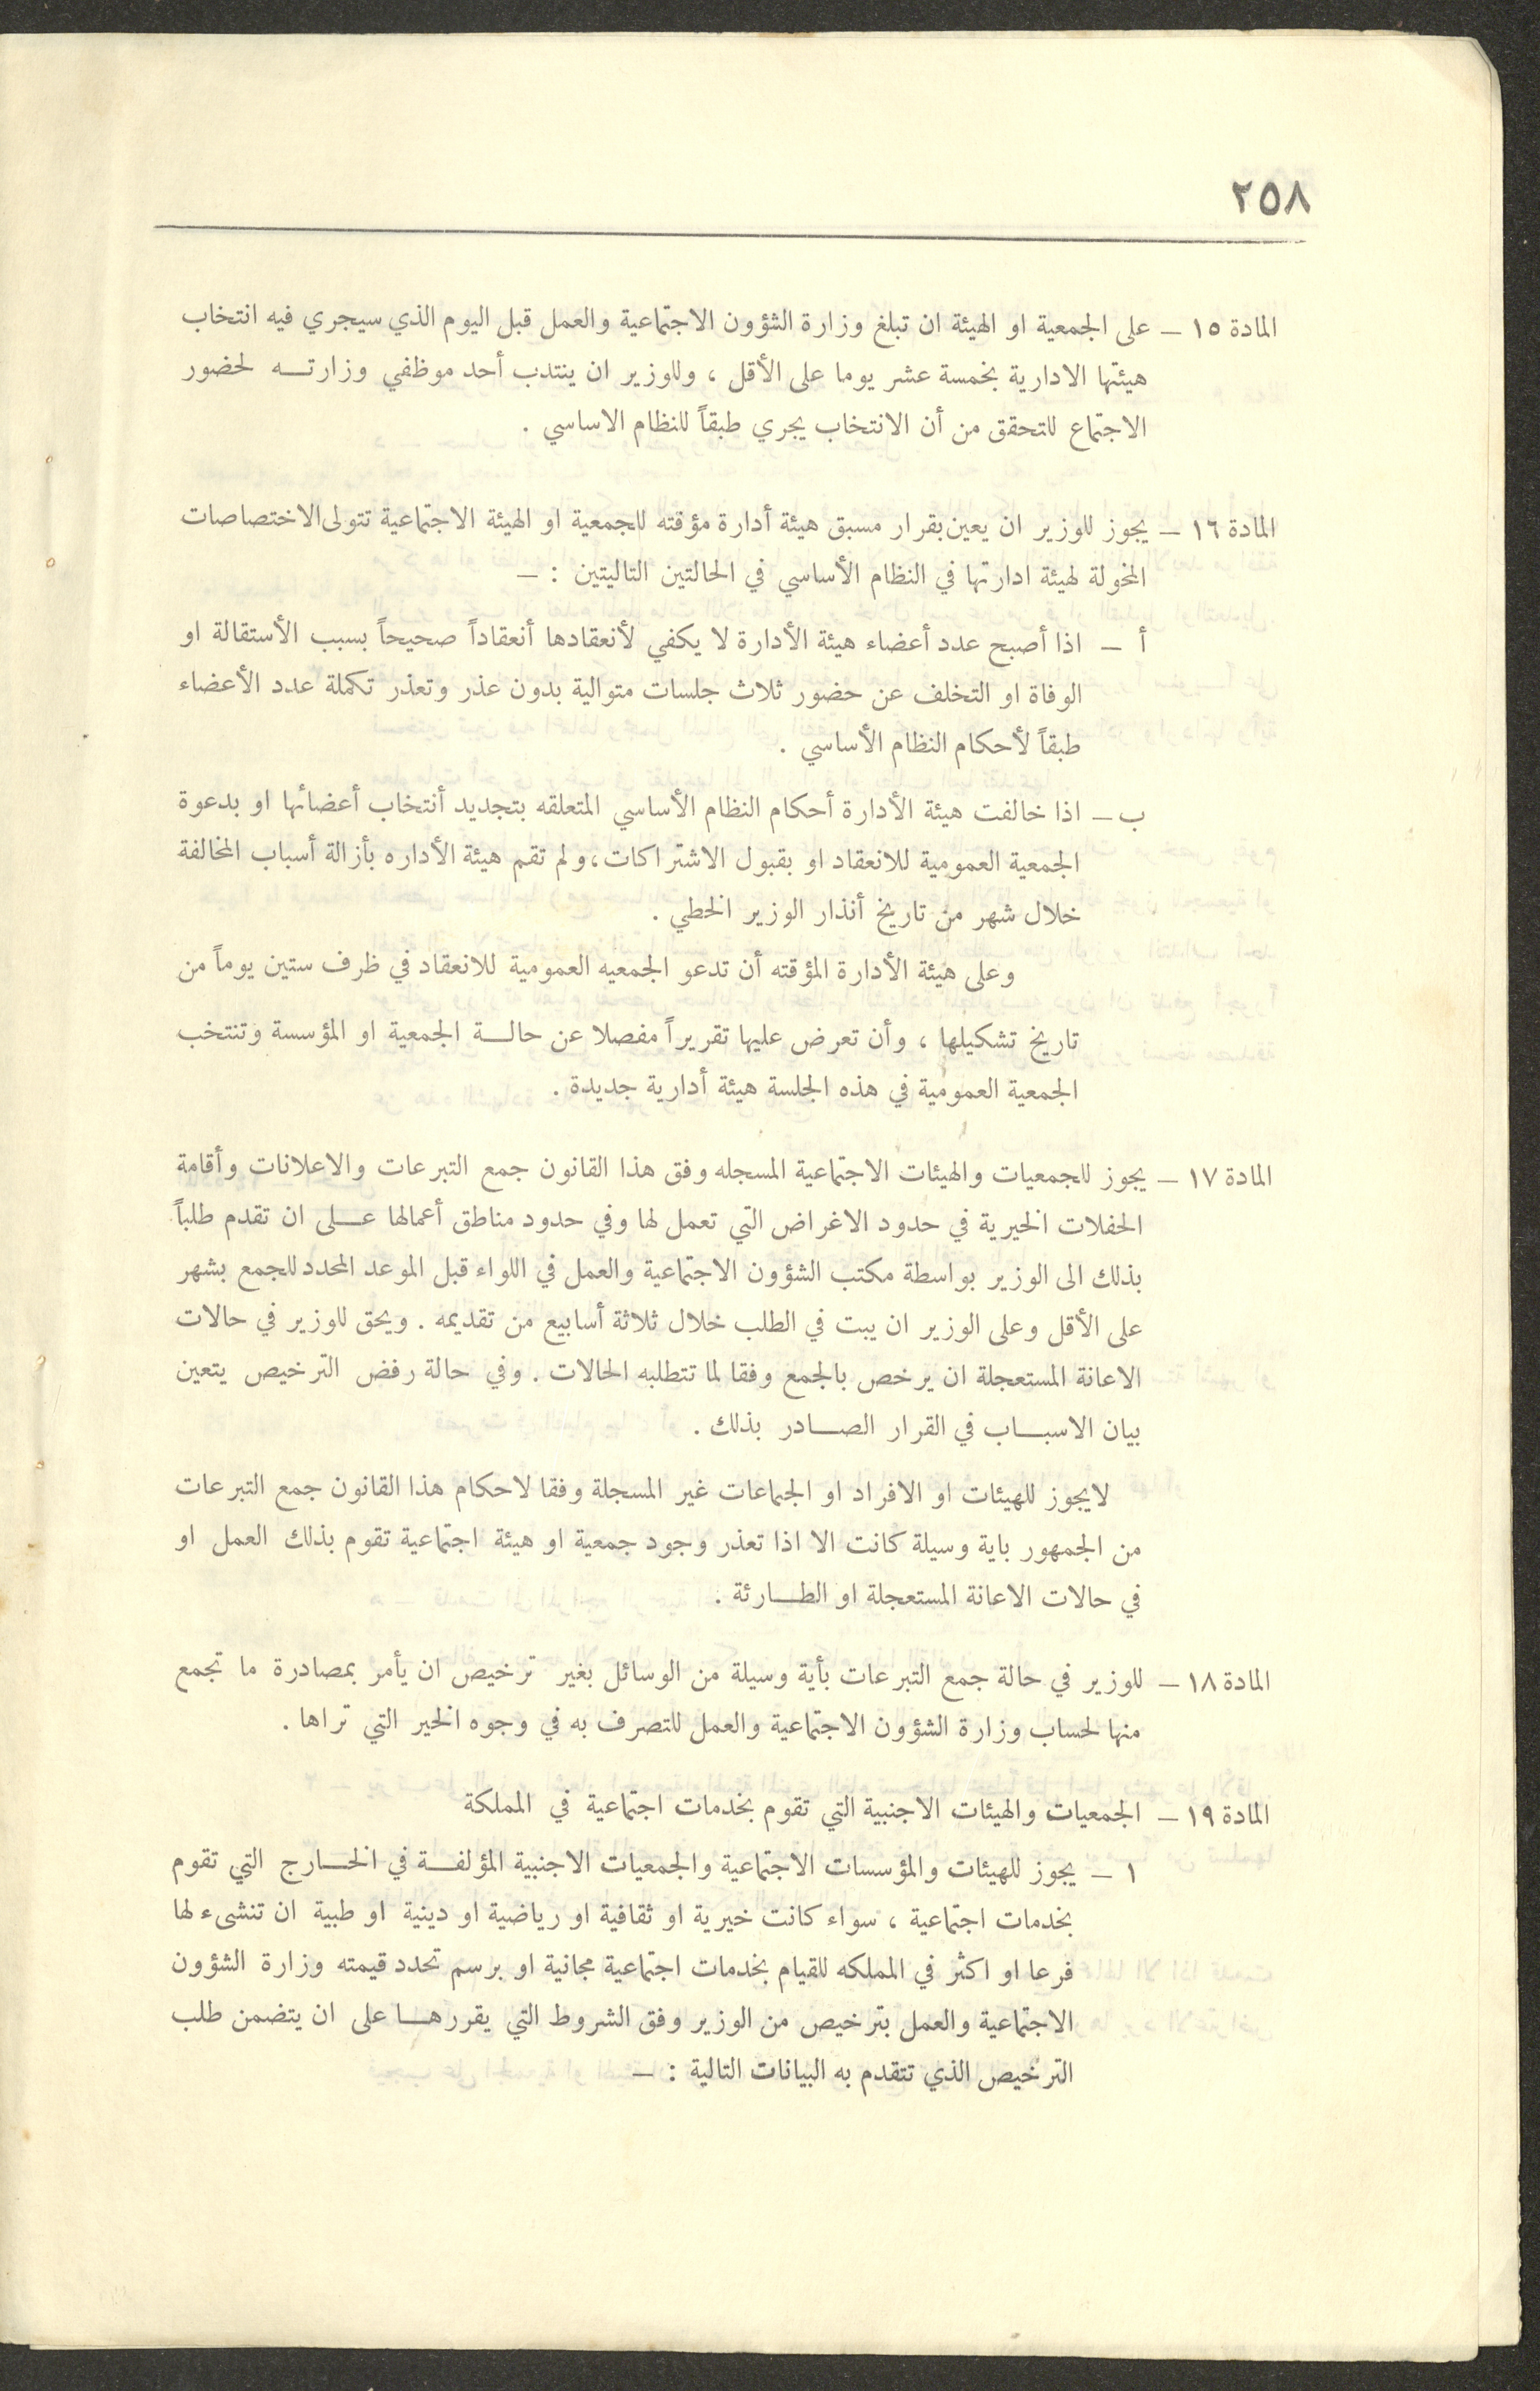 ٢٥٨
المادة ١٥ – على الجمعية او الهيئة ان تبلغ وزارة الشؤون الاجتماعية والعمل قبل اليوم الذي سيجري فيه انتخاب
هيئتها الادارية بخمسة عشر يوما على الأقل ، وللوزير ان ينتدب أحد موظفي وزارتـــه لحضور
الاجتماع للتحقق من أن الانتخاب يجري طبقاً للنظام الاساسي .
المادة ١٦ – يجوز للوزير ان يعين بقرار مسبق هيئة أدارة مؤقته للجمعية او الهيئة الاجتماعية تتولى الاختصاصات
المخولة لهيئة ادارتها في النظام الأساسي في الحالتين التاليتين : –
أ – اذا أصبح عدد أعضاء هيئة الأدارة لا يكفي لأنعقادها أنعقاداً صحيحاً بسبب الأستقالة او
الوفاة او التخلف عن حضور ثلاث جلسات متوالية بدون عذر وتعذر تكملة عدد الأعضاء
طبقاً لأحكام النظام الأساسي .
ب – اذا خالفت هيئة الأدارة أحكام النظام الأساسي المتعلقه بتجديد أنتخاب أعضائها او بدعوة
الجمعية العمومية للانعقاد او بقبول الاشتراكات، ولم تقم هيئة الأداره بأزالة أسباب المخالفة
خلال شهر من تاريخ أنذار الوزير الخطي .
وعلى هيئة الأدارة المؤقته أن تدعو الجمعيه العمومية للانعقاد في ظرف ستين يوماً من
تاريخ تشكيلها ، وأن تعرض عليها تقريراً مفصلا عن حالـــة الجمعية او المؤسسة وتنتخب
الجمعية العمومية في هذه الجلسة هيئة أدارية جديدة .
المادة ١٧ – يجوز للجمعيات والهيئات الاجتماعية المسجله وفق هذا القانون جمع التبرعات والاعلانات وأقامة
الحفلات الخيرية في حدود الاغراض التي تعمل لها وفي حدود مناطق أعمالها عـــلى ان تقدم طلباً
بذلك الى الوزير بواسطة مكتب الشؤون الاجتماعية والعمل في اللواء قبل الموعد المحدد للجمع بشهر
على الأقل وعلى الوزير ان يبت في الطلب خلال ثلاثة أسابيع من تقديمه . ويحق للوزير في حالات
الاعانة المستعجلة ان يرخص بالجمع وفقا لما تتطلبه الحالات . وفي حالة رفض الترخيص يتعين
بيان الاسبـــاب في القرار الصـــادر بذلك .
لايجوز للهيئات او الافراد او الجماعات غير المسجلة وفقا لاحكام هذا القانون جمع التبرعات
من الجمهور باية وسيلة كانت الا اذا تعذر وجود جمعية او هيئة اجتماعية تقوم بذلك العمل او
في حالات الاعانة المستعجلة او الطـــارئة .
المادة ١٨ – للوزير في حالة جمع التبرعات بأية وسيلة من الوسائل بغير ترخيص ان يأمر بمصادرة ما تجمع
منها لحساب وزارة الشؤون الاجتماعية والعمل للتصرف به في وجوه الخير التي تراها .
المادة ١٩ – الجمعيات والهيئات الاجنبية التي تقوم بخدمات اجتماعية في المملكة
١ – يجوز للهيئات والمؤسسات الاجتماعية والجمعيات الاجنبية المؤلفـــة في الخـــارج التي تقوم
بخدمات اجتماعية ، سواء كانت خيرية او ثقافية او رياضية او دينية او طبية ان تنشىء لها
فرعا او اكثر في المملكه للقيام بخدمات اجتماعية مجانية او برسم تحدد قيمته وزارة الشؤون
الاجتماعية والعمل بترخيص من الوزير وفق الشروط التي يقررهـــا على ان يتضمن طلب
الترخيص الذي تتقدم به البيانات التالية : –